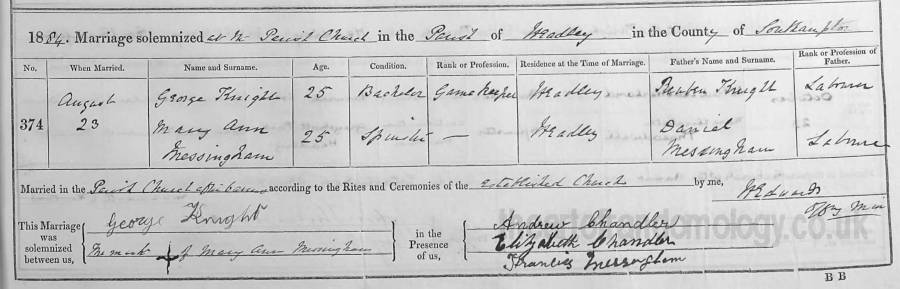 1884. Marriage solemnized at the Parish Church in the Parish of Headley in the County of Southampton
No. When Married. Name and Surname. Age. Condition. Rank or Profession. Residence at the Time of Marriage. Father's Name and Surname. Rank or Profession of Father.
374 August 23 George Knight 25 Bachelor Gamekeeper Headley Reuben Knight Labourer
Mary Ann Messingham 25 Spinster — Headley Daniel Messingham Labourer
Married in the Parish Church after banns according to the Rites and Ceremonies of the Established Church by me, W Edwards
Offg Min
This Marriage was solemnized between us, George Knight
The mark + of Mary Ann Messingham
in the Presence of us, Andrew Chandler
Elizabeth Chandler
Francies Messingham
B B